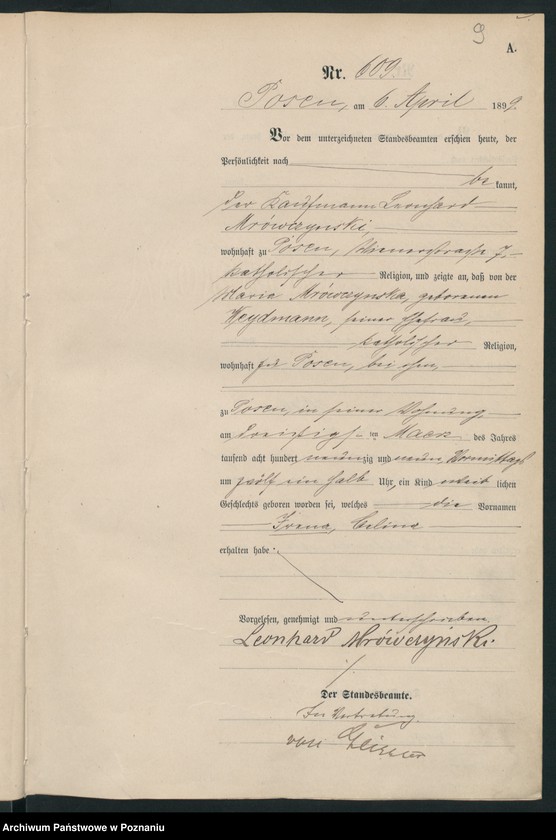 9
A.
Nr. 609
Posen, am 6. April 1899.
Vor dem unterzeichneten Standesbeamten erschien heute, der
Persönlichkeit nach
be kannt,
der Kaufmann Leonhard
Mrówczynski,
wohnhaft zu Posen, 7,
katholischer Religion, und zeigte an, daß von der
Maria Mrówczynska, geborenen
Weydmann, seiner Ehefrau,
katholischer Religion,
wohnhaft zu Posen, bei ihm,
zu Posen, in seiner Wohnung,
am dreißigsten März des Jahres
tausend acht hundert neunzig und neun, Vormittags
um zwölf ein halb Uhr, ein Kind weib lichen
Geschlechts geboren worden sei, welches die Vornamen
Irena, Celina
erhalten habe.
Vorgelesen, genehmigt und unterschrieben
Leonhard Mrówczyński.
Der Standesbeamte.
In Vertretung
von
Archiwum Państwowe w Poznaniu